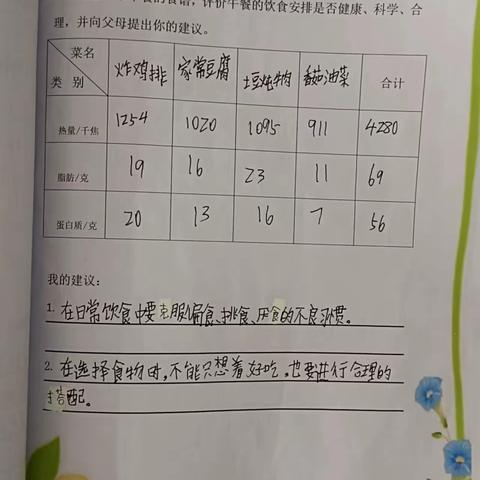 食谱，评价午餐的饮食安排是否健康、科学、合
理，并向父母提出你的建议。
菜名
类 别
炸鸡排 家常豆腐 土豆炖牛肉 香菇油菜 合计
热量/千焦 1254 1020 1095 911 4280
脂肪/克 19 16 23 11 69
蛋白质/克 20 13 16 7 56
我的建议：
1. 在日常饮食中要克服偏食、挑食、厌食的不良习惯。
2. 在选择食物时，不能只想着好吃，也要进行合理的
搭配。